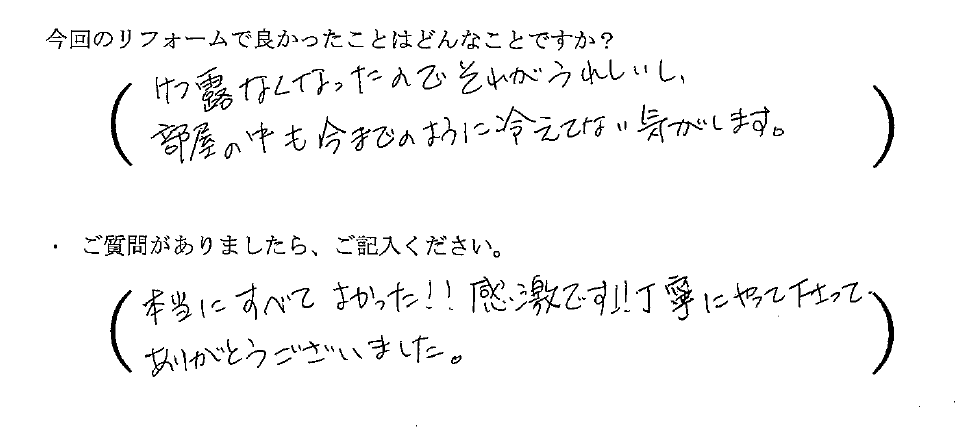 今回のリフォームで良かったことはどんなことですか？
(けつ露なくなったのでそれがうれしいし、
部屋の中も今までのように冷えてない気がします。)
・ご質問がありましたら、ご記入ください。
(本当にすべてよかった!!感激です!!丁寧にやって下さって
ありがとうございました。)